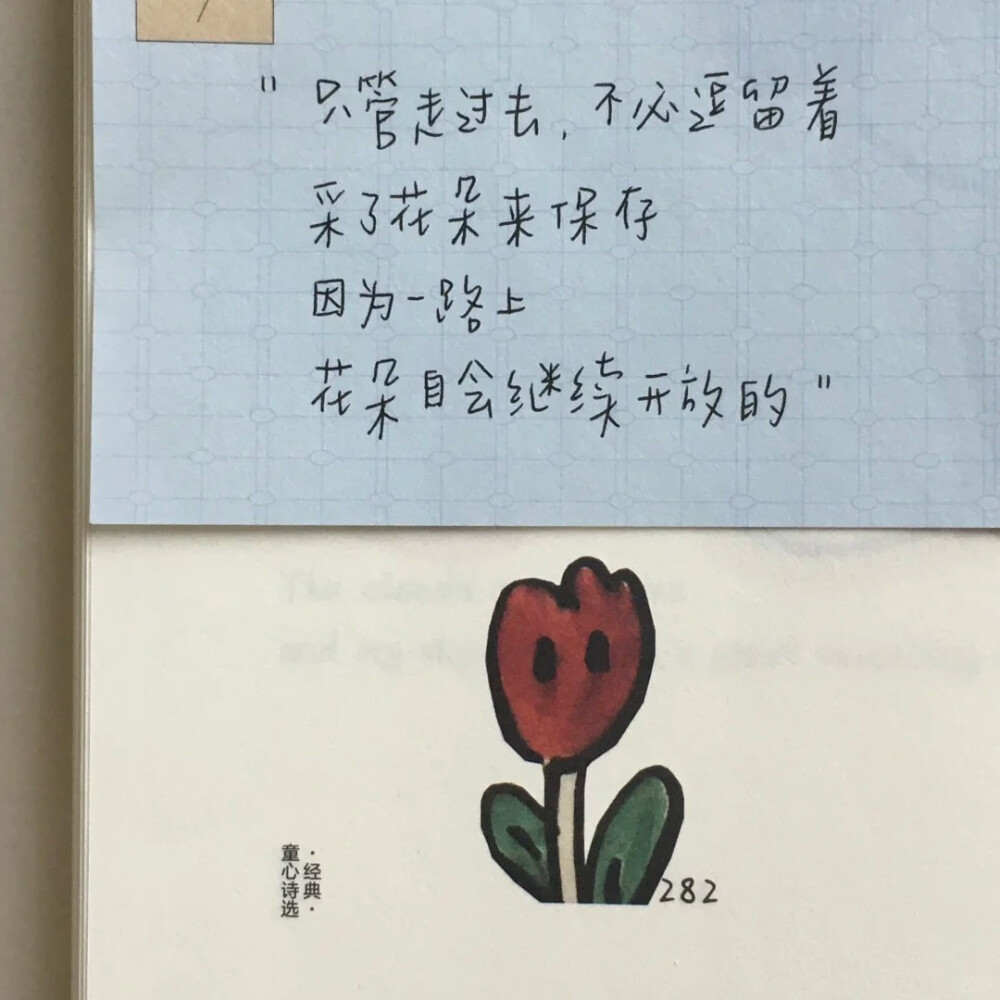 "只管走过去,不必逗留着
采了花朵来保存
因为一路上
花朵自会继续开放的"
·经典·
童心诗选
282